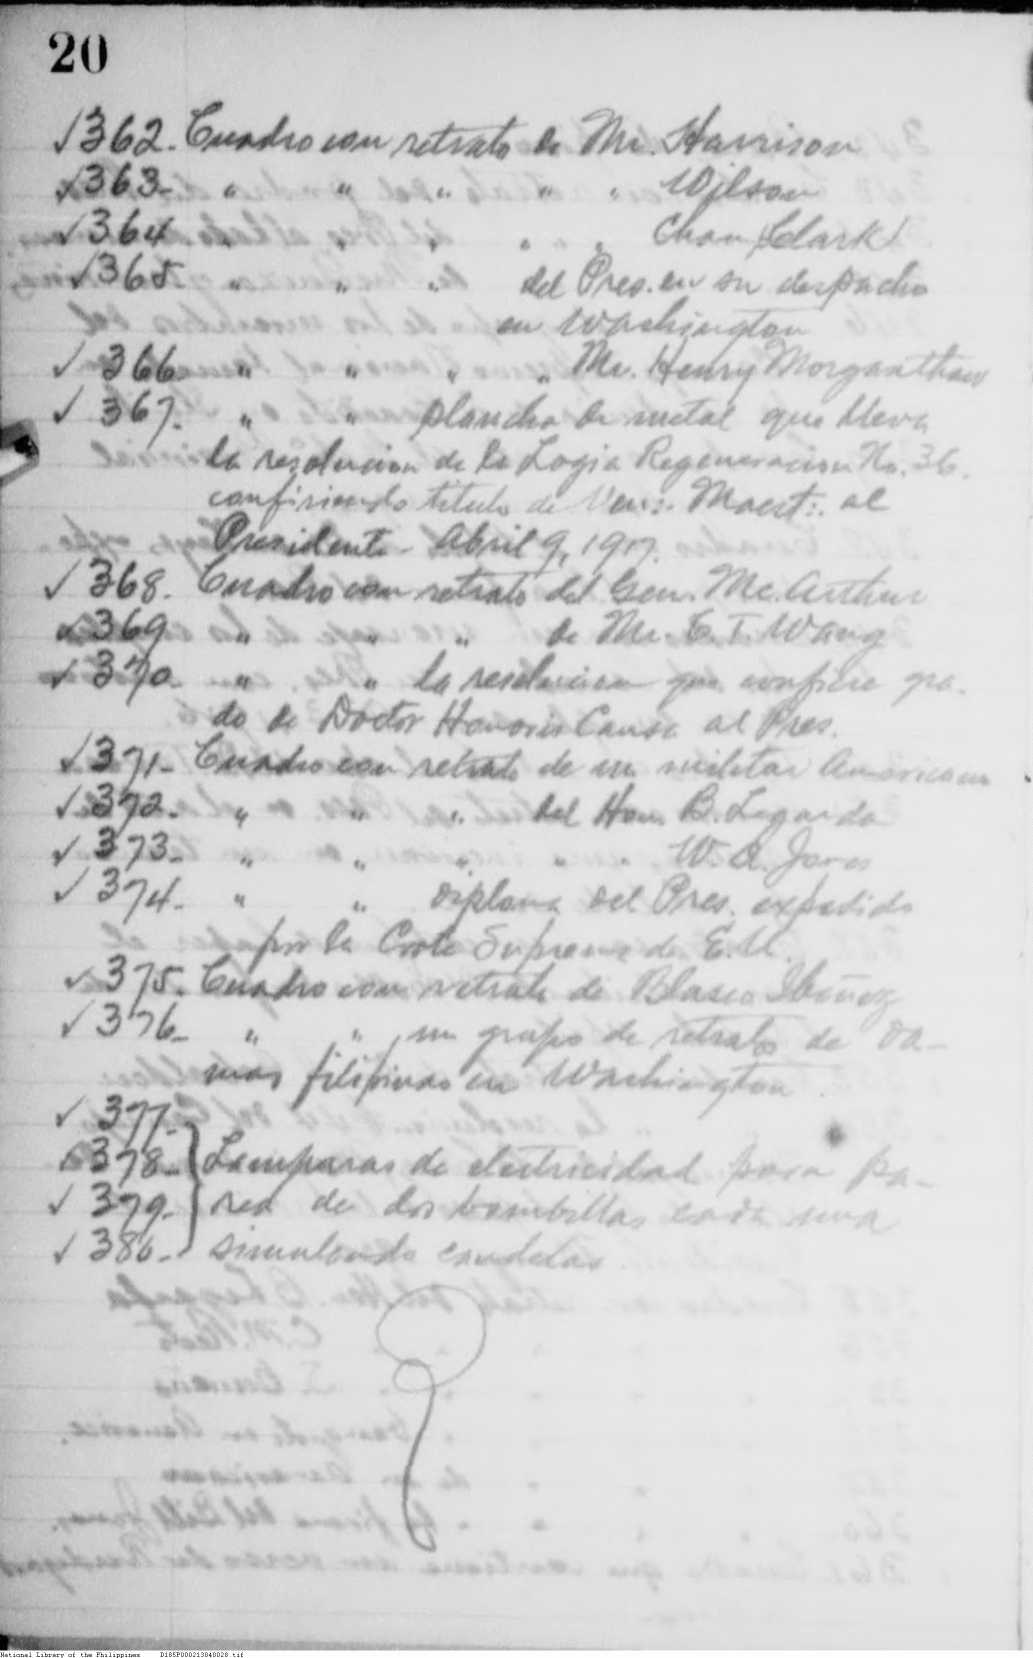 20
√362. Cuadro con retrato de Mr. Harrison
√363- " " " " " Wilson
√364 " " " " " Cham Clark
√365 " " " del Pres. en su despacho
en Washington
√ 366 " " " " Mr. Henry Morganthau
√ 367. " " plancha de metal que lleva
la resolucion de la Logia Regeneracion No. 36.
confiriendo titulo de Ven:. Maest:. al
Presidente - Abril 9, 1917.
√ 368. Cuadro con retrato del Gen. Mc. Arthur
√ 369 " " " de Mr. C. T. Wang
√ 370- " " la resolucion que confiere gra-
do de Doctor Honoris Causa al Pres.
√ 371- Cuadro con retrato de un militar Americano
√ 372- " " " del Hon. B. Legarda
√ 373- " " " " " W. A. Jones
√ 374- " " diploma del Pres. expedido
por la Corte Suprema de E.U.
√ 375. Cuadro con retrato de Blasco Ibañez
√ 376- " " un grupo de retratos de da-
mas filipinas en Washington
√ 377-
√ 378- Lamparas de electricidad para pa-
√ 379- red de dos bombillas cada una
√ 380- simulando candelas
National Library of the Philippines D185P000213840028.tif